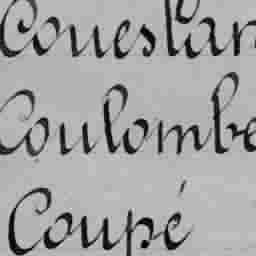 CouesLan
Coulombe
Coupé